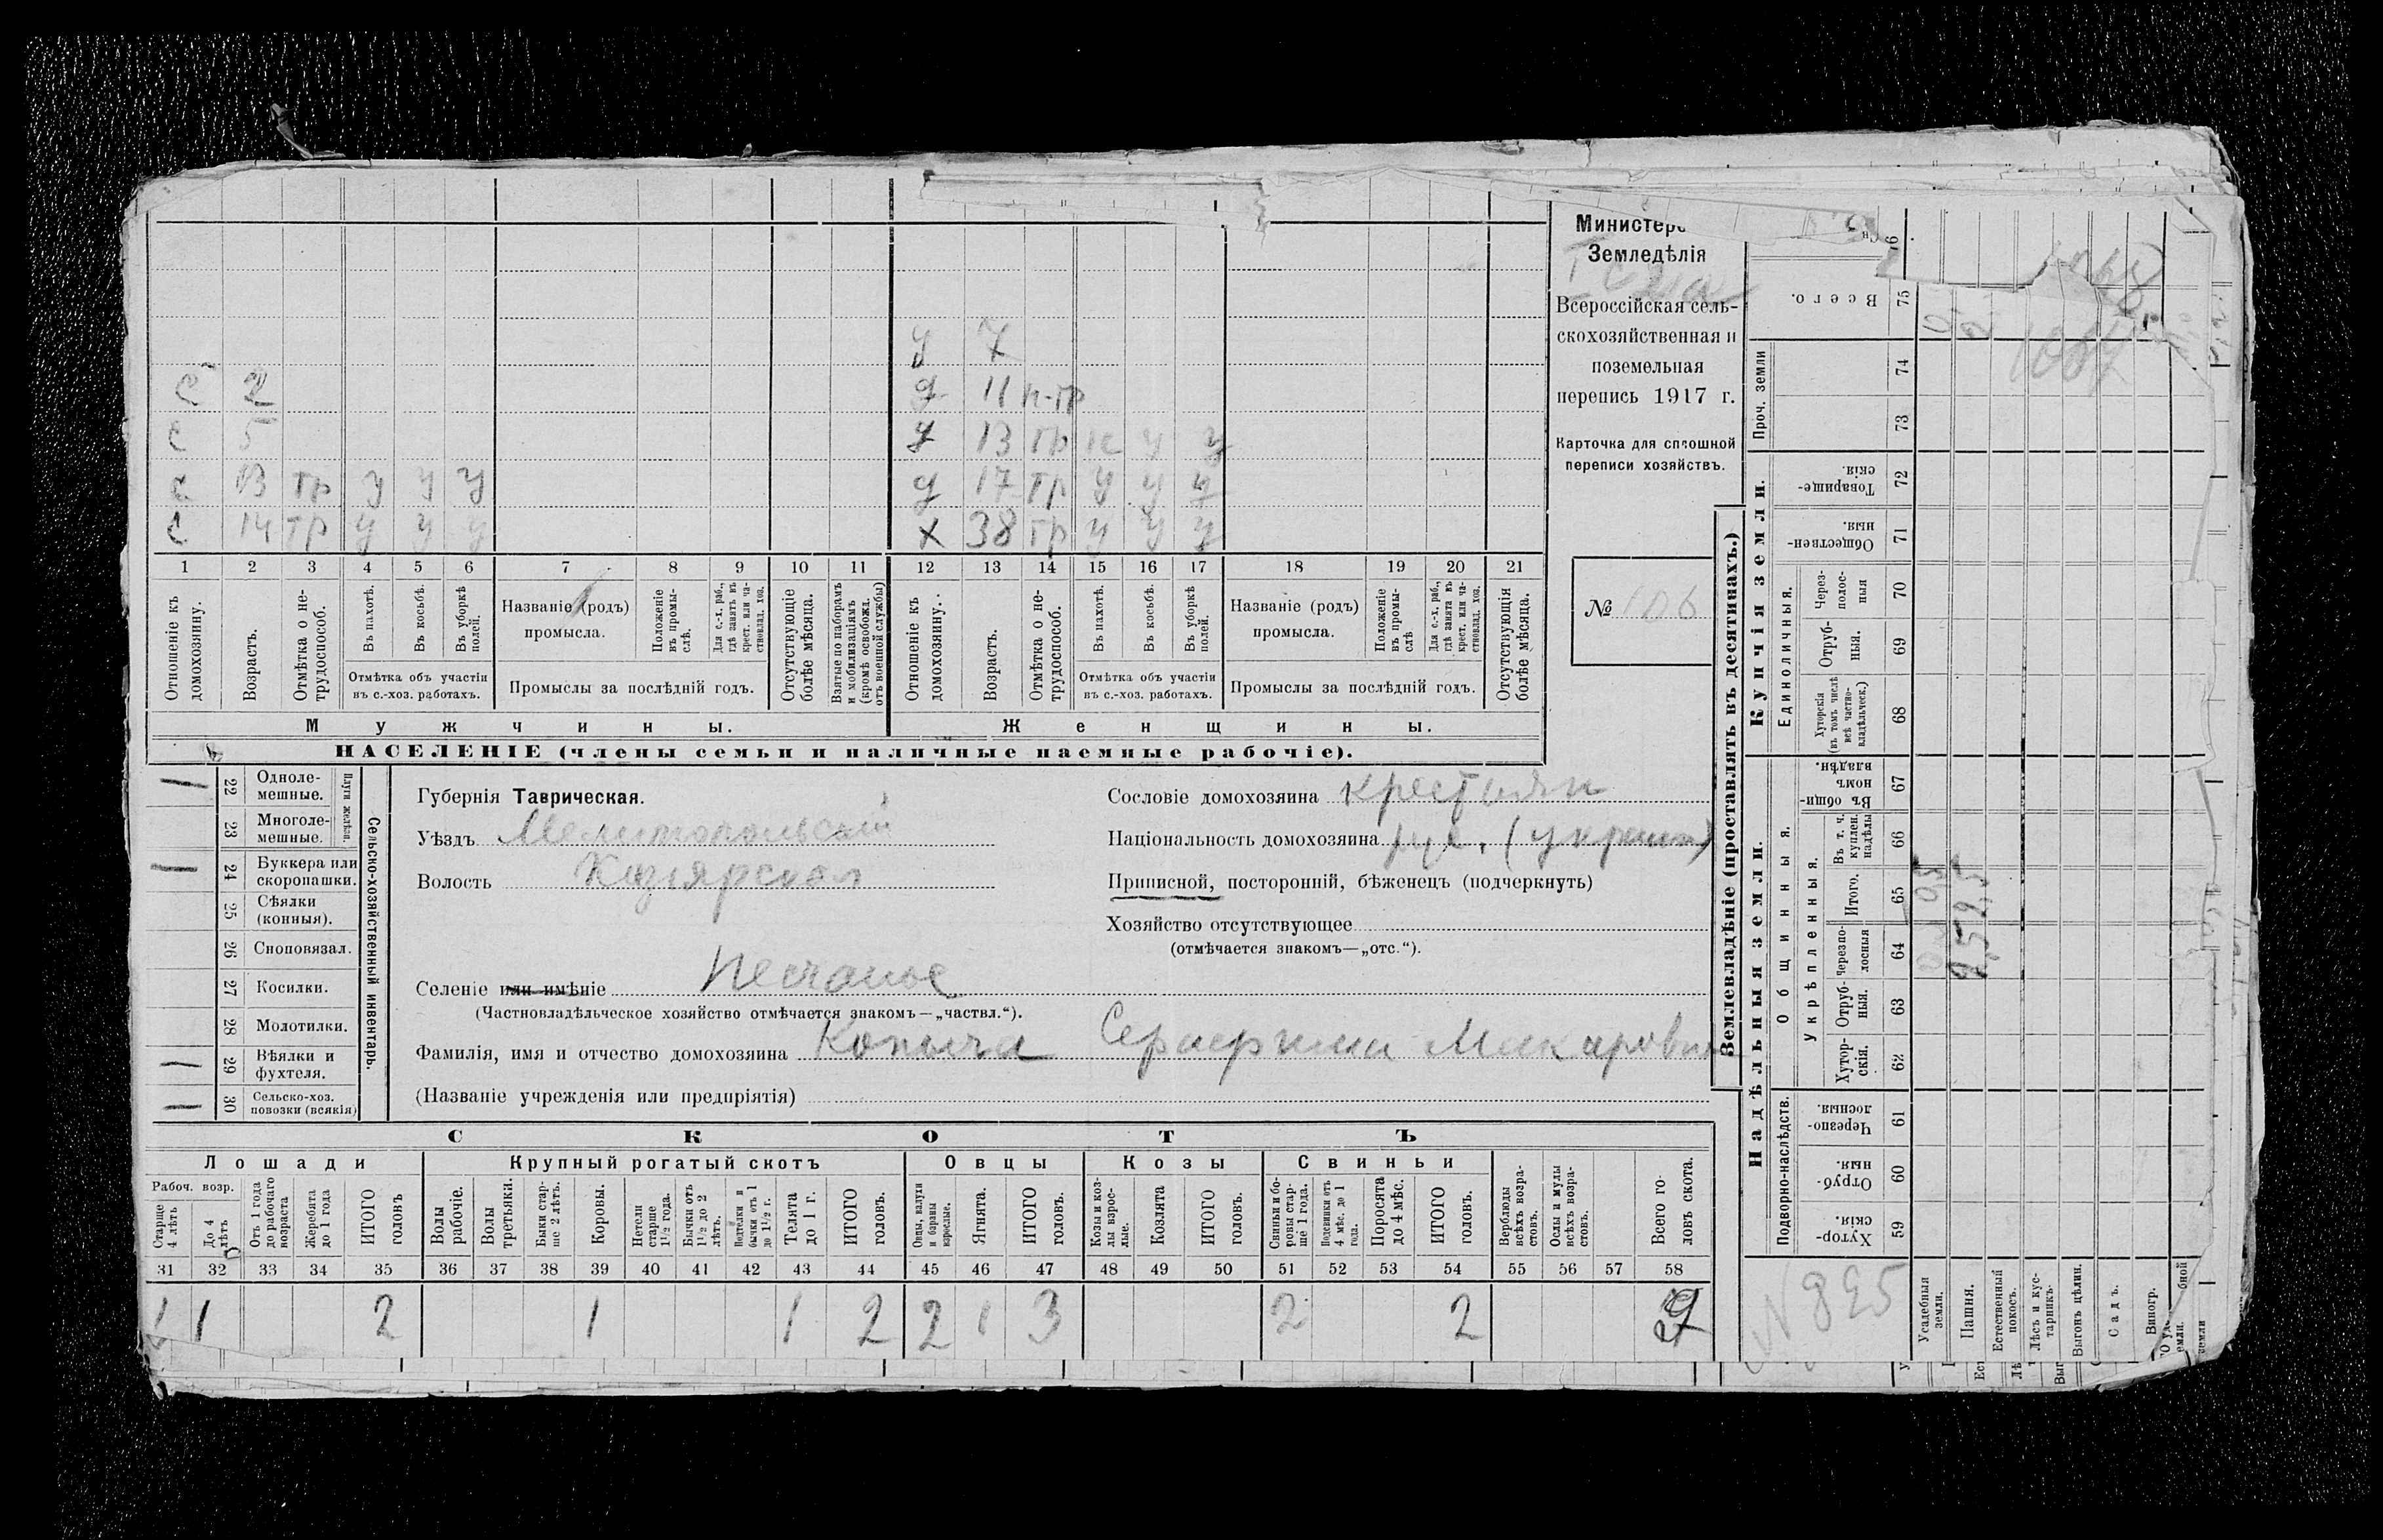 у 7
с 2 д 11 п-тр
с 5 д 13 тр у у
с 13 тр у у у д 17 тр у у у
с 14 тр у у у х 38 тр у у у
1 2 3 4 5 6 7 8 9 10 11 12 13 14 15 16 17 18 19 20 21
Отношеніе къ домохозяину.
Возрастъ.
Отмѣтка о не-трудоспособ.
Въ пахотѣ.
Въ косьбѣ.
Въ уборкѣ полей.
Отмѣтка объ участіи
въ с.-хоз. работахъ.
Названіе (родъ)
промысла.
Положеніе въ промы-слѣ.
Для с.-х. раб., гдѣ занятъ въ крест. или ча-стновлад. хоз.
Промыслы за послѣдній годъ.
Отсутствующіе болѣе мѣсяца.
Взятые по наборамъ и мобилизаціямъ (кромѣ освобожд. отъ военной службы)
Отношеніе къ домохозяину.
Возрастъ.
Отмѣтка о не-трудоспособ.
Въ пахотѣ.
Въ косьбѣ.
Въ уборкѣ полей.
Отмѣтка объ участіи
въ с.-хоз. работахъ.
Названіе (родъ)
промысла.
Положеніе въ промы-слѣ
Для с.-х. раб., гдѣ занята въ крест. или ча-стновлад. хоз.
Промыслы за послѣдній годъ.
Отсутствующія болѣе мѣсяца.
Мужчины. Женщины.
НАСЕЛЕНІЕ (члены семьи и наличные наемные рабочіе).
Министерс
Земледѣлія
Всероссійская сель-
скохозяйственная и
поземельная
перепись 1917 г.
Карточка для сплошной
переписи хозяйствъ.
№ 106
Сельско-хозяйственный инвентарь.
Плуги желѣзн.
1 22 Одноле-мешные.
23 Многоле-мешные.
1 24 Буккера или скоропашки.
25 Сѣялки (конныя).
26 Сноповязал.
27 Косилки.
28 Молотилки.
1 29 Вѣялки и фухтеля.
1 30 Сельско-хоз. повозки (всякія)
Губернія Таврическая.
Уѣздъ Мелитопольскій
Волость Кизіярская
Селеніе или имѣніе Песчаное
(Частновладѣльческое хозяйство отмѣчается знакомъ—„частвл.“).
Фамилія, имя и отчество домохозяина Копыча Серафима Макарович
(Названіе учрежденія или предпріятія)
Сословіе домохозяина крестьян
Національность домохозяина рус. (украин)
Приписной, посторонній, бѣженецъ (подчеркнуть)
Хозяйство отсутствующее
(отмѣчается знакомъ—„отс.“).
СКОТЪ
Лошади Крупный рогатый скотъ Овцы Козы Свиньи
Рабоч. возр.
Старше 4 лѣтъ
До 4 лѣтъ
Отъ 1 года до рабочаго возраста
Жеребята до 1 года
ИТОГО головъ
Волы рабочіе.
Волы третьяки.
Быки стар-ше 2 лѣтъ.
Коровы.
Нетели старше 1½ года.
Бычки отъ 1½ до 2 лѣтъ.
Подтелки и бычки отъ 1 до 1½ г.
Телята до 1 г.
ИТОГО головъ.
Овцы, валухи и бараны взрослые.
Ягнята.
ИТОГО головъ.
Козы и коз-лы взрос-лые.
Козлята
ИТОГО головъ.
Свиньи и бо-ровы стар-ше 1 года.
Подсвинки отъ 4 мѣс. до 1 года.
Поросята до 4 мѣс.
ИТОГО головъ.
Верблюды всѣхъ возра-стовъ.
Ослы и мулы всѣхъ возра-стовъ.
Всего го-ловъ скота.
31 32 33 34 35 36 37 38 39 40 41 42 43 44 45 46 47 48 49 50 51 52 53 54 55 56 57 58
1 1 2 1 1 2 2 1 3 2 2 9
Землевладѣніе (проставлять въ десятинахъ.)
Купчія земли.
Надѣльныя земли.
Всего. 75
Проч. земли 74 73
Товарище-скія. 72
Обществен-ныя. 71
Единоличныя.
Через-полос-ныя 70
Отруб-ныя. 69
Хуторскія (въ томъ числѣ всѣ частно-владѣльческ.) 68
Общинныя.
Въ общи-номъ владѣн. 67
Укрѣпленныя.
Въ т. ч. куплен. надѣлы 66
Итого. 65
Черезпо-лосныя 64
Отруб-ныя. 63
Хутор-скія. 62
Подворно-наслѣдств.
Черезпо-лосныя. 61
Отруб-ныя. 60
Хутор-скія. 59
1087
N 895
Усадебныя земли.
Пашня.
Естественный покосъ.
Лѣсъ и кус-тарникъ.
Выгонъ цѣлин.
Садъ.
Виногр.